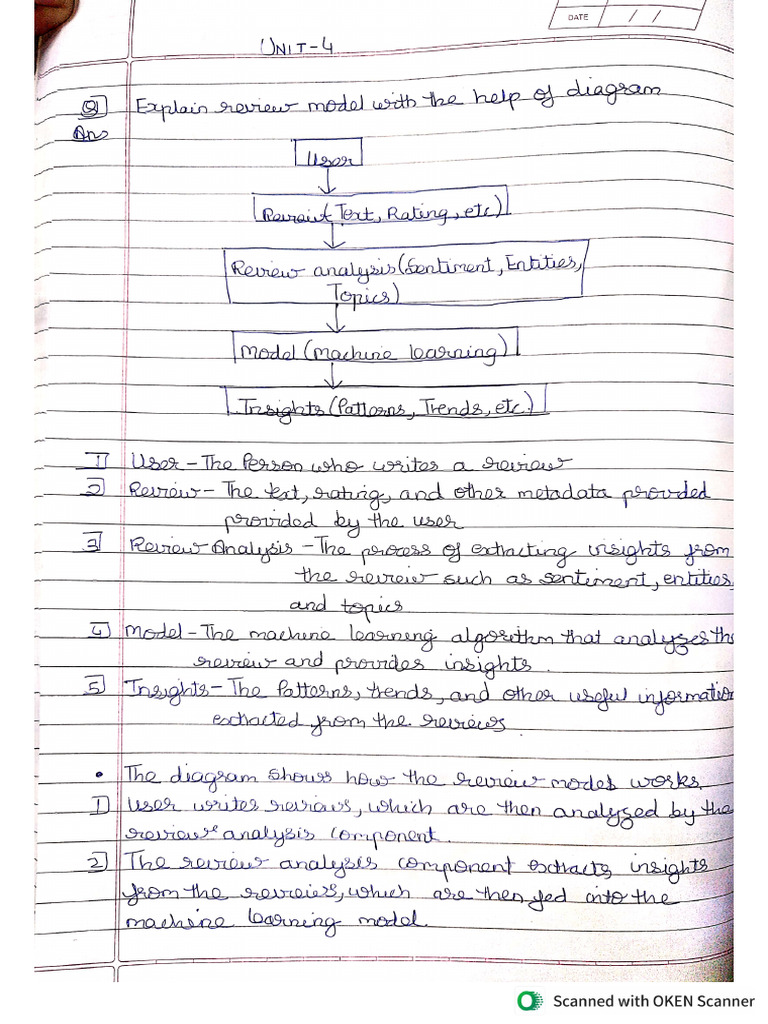 DATE / /
UNIT-4
Q Explain review model with the help of diagram
Ans
User
Review (Text, Rating, etc)
Review analysis (Sentiment, Entities,
Topics)
Model (machine learning)
Insights (Patterns, Trends, etc.)
1 User - The Person who writes a review
2 Review - The text, rating, and other metadata provided
provided by the user
3 Review Analysis - The process of extracting insights from
the review such as sentiment, entities,
and topics
4 Model - The machine learning algorithm that analyzes the
review and provides insights.
5 Insights - The Patterns, trends, and other useful information
extracted from the reviews.
• The diagram shows how the review model works.
1 User writes reviews, which are then analyzed by the
review analysis component.
2 The review analysis component extracts insights
from the reviews, which are then fed into the
machine learning model.
Scanned with OKEN Scanner